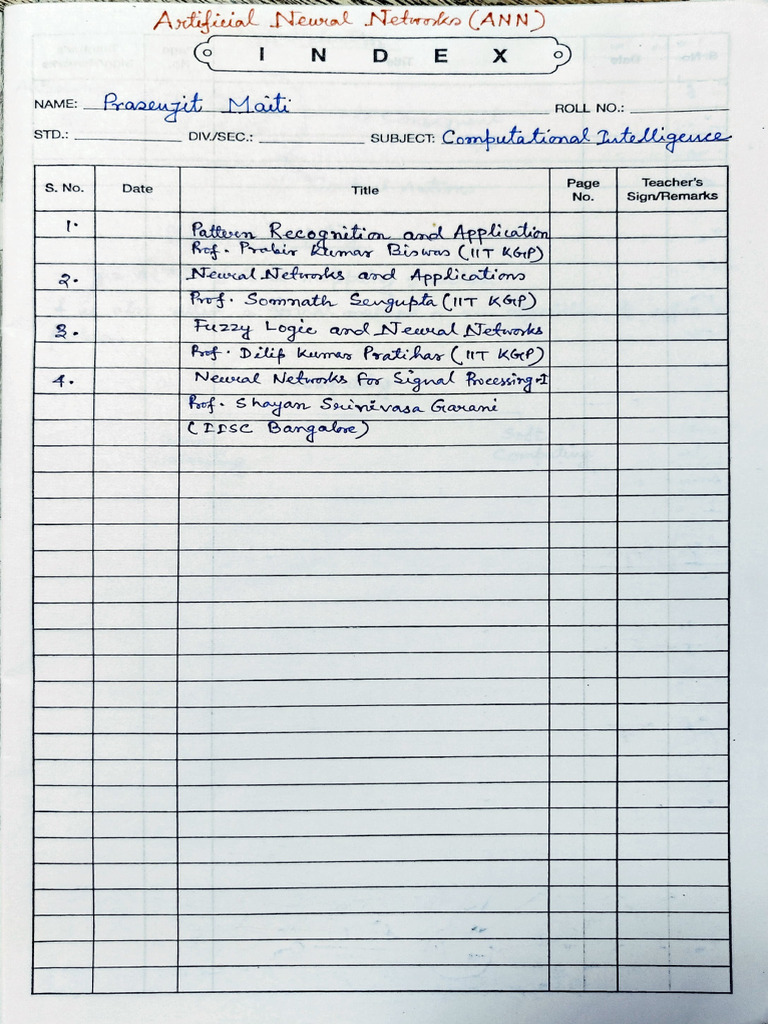 Artificial Neural Networks (ANN)
INDEX
NAME: Prasenjit Maiti ROLL NO.:
STD.: DIV/SEC.: SUBJECT: Computational Intelligence
S. No. Date Title Page No. Teacher's Sign/Remarks
1. Pattern Recognition and Application
Prof. Prabir Kumar Biswas (IIT KGP)
2. Neural Networks and Applications
Prof. Somnath Sengupta (IIT KGP)
3. Fuzzy Logic and Neural Networks
Prof. Dilip Kumar Pratihar (IIT KGP)
4. Neural Networks for Signal Processing-I
Prof. Shayan Srinivasa Garani
(IISC Bangalore)